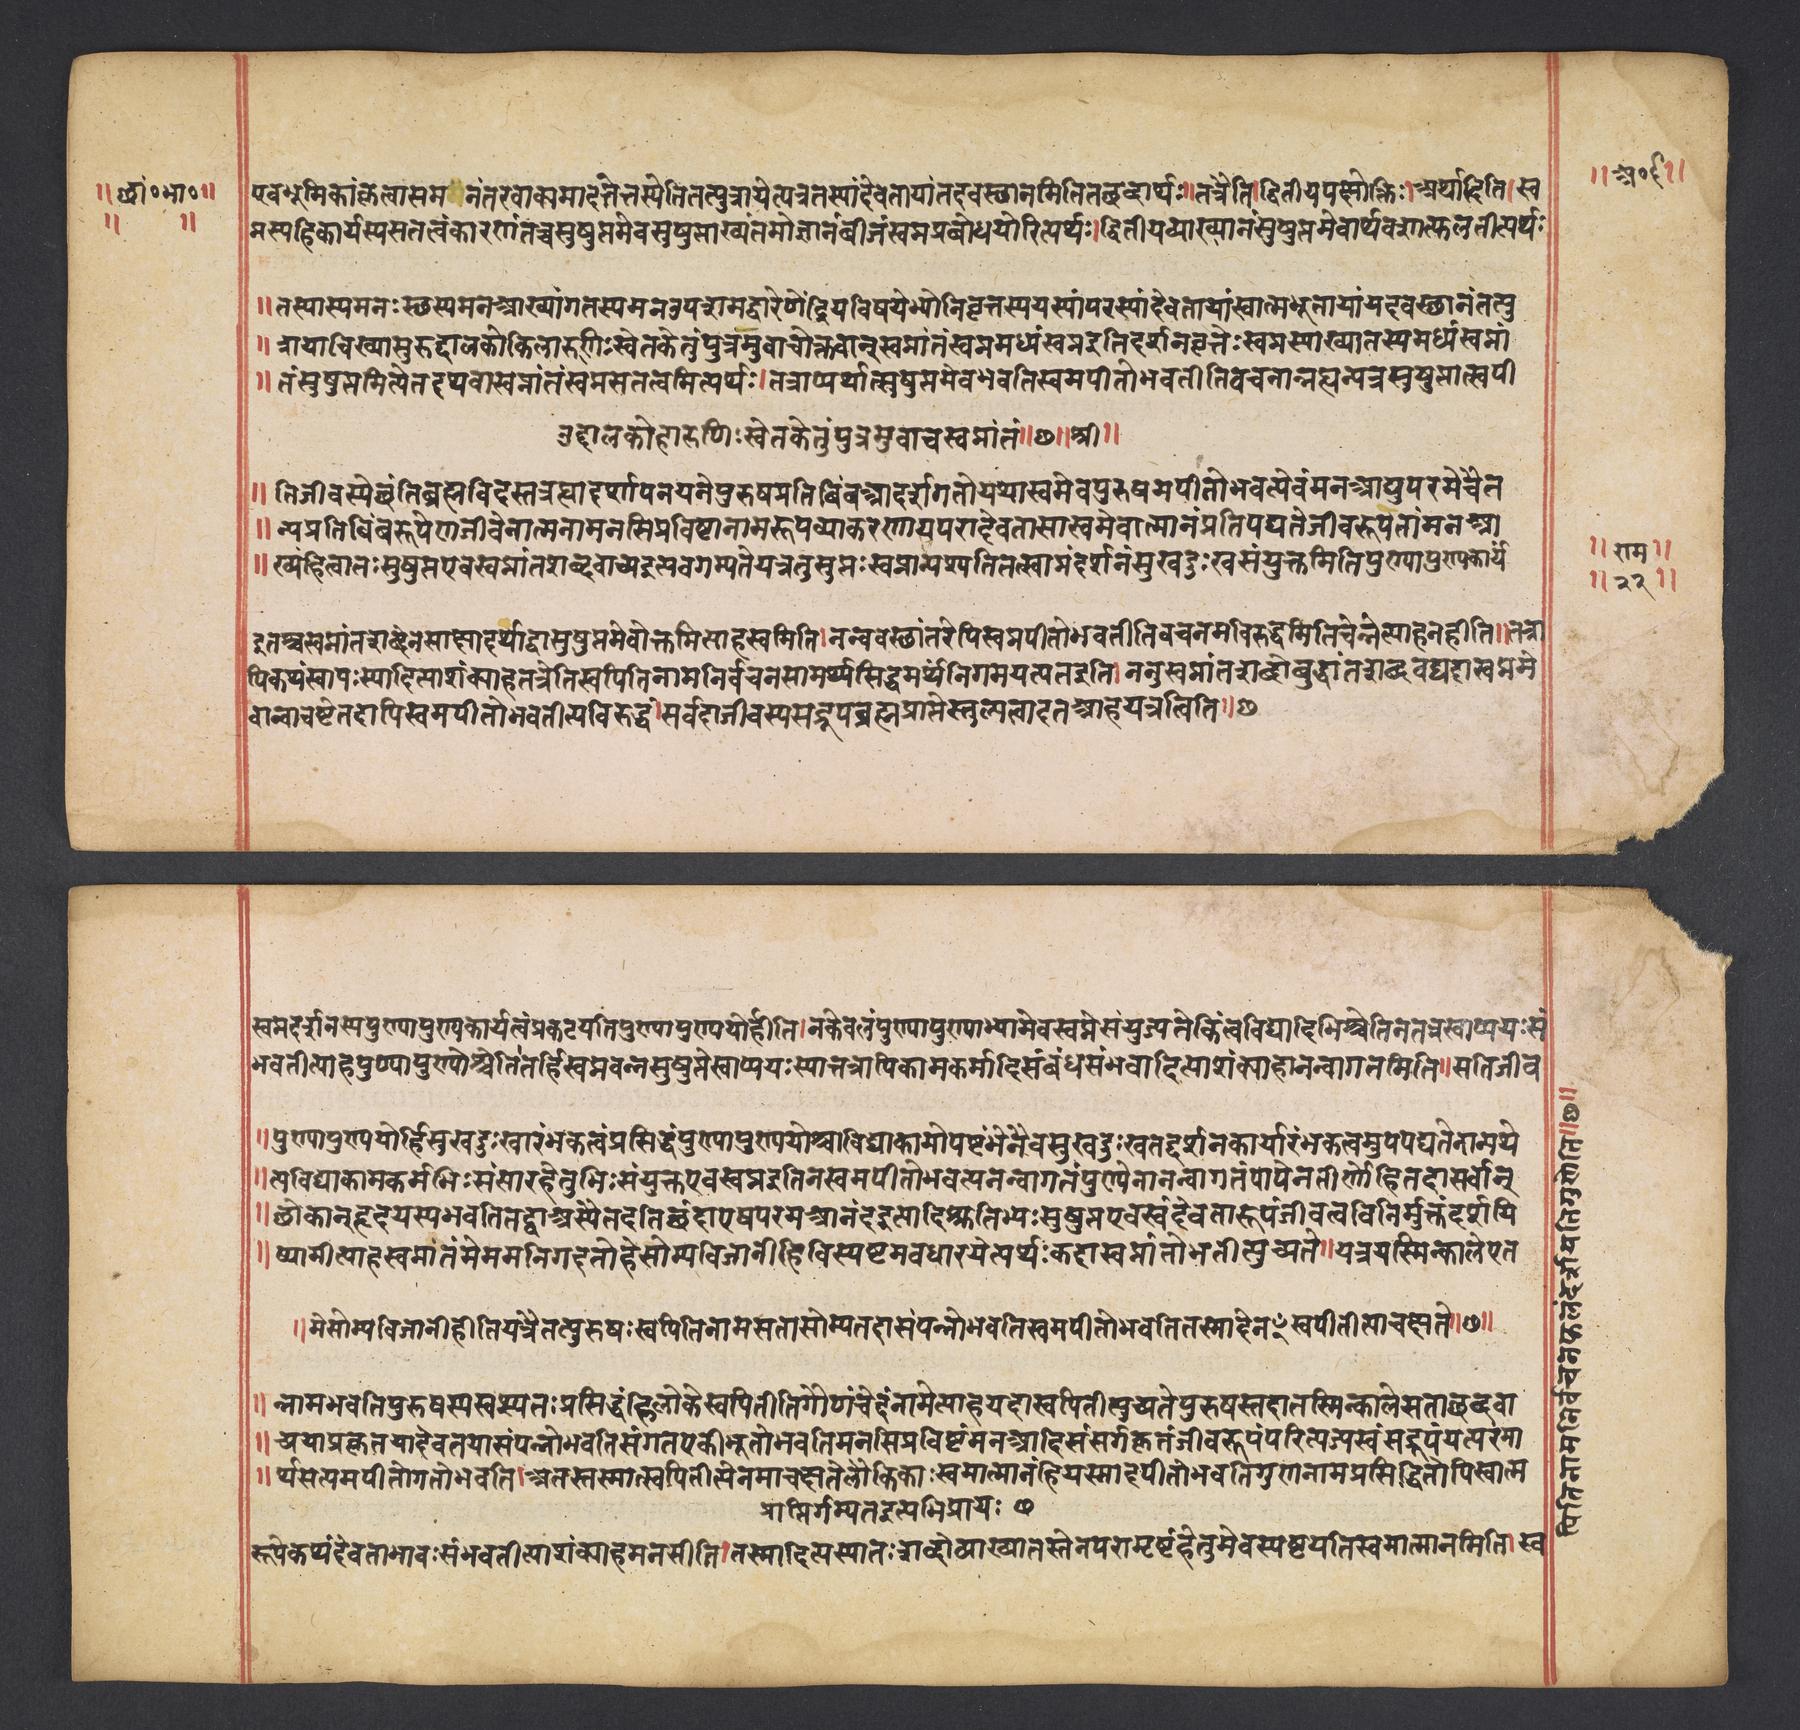 ॥छां०भा०॥
॥ ॥
॥अ०६॥
एवभूमिकांकृत्वासमनंतरवाक्यमादत्तेत्तस्येतितत्पुत्रायेत्यत्रतस्यांदेवतायांतदवस्छानमितितछब्दार्थः॥तत्रेति।द्वितीयपक्षोक्तिः।अर्थादिति।स्व
प्नस्यहिकार्यस्यसतत्वंकारणंतच्चसुषुप्तमेवसुषुप्ताख्यंतमोज्ञानंबीजंस्वप्नप्रबोधयोरित्यर्थः।द्वितीयव्याख्यानंसुषुप्तमेवार्थवशात्फलतीत्यर्थः
॥तस्यास्यमनःस्छस्यमनआख्यांगतस्यमनउपशमद्वारेणेंद्रियविषयेभ्योनिवृत्तस्ययस्यांपरस्यांदेवतायांस्वात्मभूतायांयदवस्छानंतत्पु
॥त्रायाचिख्यासुरुद्दालकोकिलारुणिःश्वेतकेतुंपुत्रमुवाचोक्तवान्स्वप्नांतंस्वप्नमध्यंस्वप्नइतिदर्शनवृत्तेःस्वप्नस्याख्यातस्यमध्यंस्वप्नां
॥तंसुषुप्तमित्येतदथवास्वप्नांतंस्वप्नसतत्वमित्यर्थः।तत्राप्यर्थात्सुषुप्तमेवभवतिस्वमपीतोभवतीतिवचनान्नह्यन्यत्रसुषुप्तात्स्वपी
उद्दालकोहारुणिःश्वेतकेतुंपुत्रमुवाचस्वप्नांतं॥छ॥श्री॥
॥तिजीवस्येछंतिब्रह्मविदस्तत्रह्यादर्शापनयनेपुरुषप्रतिबिंबआदर्शगतोयथास्वमेवपुरुषमपीतोभवत्येवंमनआद्युपरमेचैत
॥न्यप्रतिबिंबरूपेणजीवेनात्मनामनसिप्रविष्टानामरूपव्याकरणायपरादेवतासास्वमेवात्मानंप्रतिपद्यतेजीवरूपतांमनआ
॥ख्यंहित्वातःसुषुप्तएवस्वप्नांतशब्दवाच्यइत्यवगम्यतेयत्रतुसुप्तःस्वप्नान्पश्यतितत्स्वाप्नंदर्शनंसुखदुःखसंयुक्तमितिपुण्यापुण्यकार्यं
॥राम॥
॥२२॥
इतश्चस्वप्नांतशब्देनसाक्षादर्थाद्वासुषुप्तमेवोक्तमित्याहस्वमिति।नन्ववस्छांतरेपिस्वमपीतोभवतीतिवचनमविरुद्धमितिचेन्नेत्याहनहीति॥तत्रा
पिकथंस्वापःस्यादित्याशंक्याहतत्रेतिस्वपितिनामनिर्वचनसामर्थ्यसिद्धमर्थंनिगमयत्यतइति।ननुस्वप्नांतशब्दोबुद्धांतशब्दवद्यदास्वप्नमे
वान्वाचष्टेतदापिस्वमपीतोभवतीत्यविरुद्धं।सर्वदाजीवस्यसद्रूपब्रह्मप्राप्तेस्तुल्यत्वादतआहयत्रत्विति॥छ
स्वप्नदर्शनस्यपुण्यापुण्यकार्यत्वंप्रकटयतिपुण्यापुण्ययोर्हीति।नकेवलंपुण्यापुण्याभ्यामेवस्वप्नेसंयुज्यतेकिंत्वविद्यादिभिश्चेतिनतत्रस्वाप्ययःसं
भवतीत्याहपुण्यापुण्योश्चेतितर्हिस्वप्नवन्नसुषुप्तेस्वाप्ययःस्यात्तत्रापिकामकर्मादिसंबंधसंभवादित्याशंक्याहानन्वागतमिति॥सतिजीव
॥पुण्यापुण्ययोर्हिसुखदुःखारंभकत्वंप्रसिद्धंपुण्यापुण्ययोश्चाविद्याकामोपष्टंभेनैवसुखदुःखतद्दर्शनकार्यारंभकत्वमुपपद्यतेनान्यथे
॥त्यविद्याकामकर्मभिःसंसारहेतुभिःसंयुक्तएवस्वप्नइतिनस्वमपीतोभवत्यनन्वागतंपुण्येनानन्वागतंपापेनतीर्णोहितदासर्वान्
॥छोकान्हृदयस्यभवतितद्वाअस्यैतदतिछंदाएषपरमआनंदइत्यादिश्रुतिभ्यःसुषुप्तएवस्वंदेवतारूपंजीवत्वविनिर्मुक्तंदर्शयि
॥ष्यामीत्याहस्वप्नांतंमेममनिगदतोहेसोम्यविजानीहिविस्पष्टमवधारयेत्यर्थःकदास्वप्नांतोभवतीत्युच्यते॥यत्रयस्मिन्कालेएत
॥मेसोम्यविजानीहीतियत्रैतत्पुरुषःस्वपितिनामसतासोम्यतदासंपन्नोभवतिस्वमपीतोभवतितस्मादेनꣳस्वपीतीत्याचक्षते॥छ॥
॥न्नामभवतिपुरुषस्यस्वप्स्यतःप्रसिद्धंहिलोकेस्वपितीतिगौणंचेदंनामेत्याहयदास्वपितीत्युच्यतेपुरुषस्तदातस्मिन्कालेसताछब्दवा
॥च्ययाप्रकृतयादेवतयासंपन्नोभवतिसंगतएकीभूतोभवतिमनसिप्रविष्टंमनआदिसंसर्गकृतंजीवरूपंपरित्यज्यस्वंसद्रूपंयत्परमा
॥र्थसत्यमपीतोगतोभवति।अतस्तस्मात्स्वपितीत्येनमाचक्षतेलौकिकाःस्वमात्मानंहियस्मादपीतोभवतिगुणनामप्रसिद्धितोपिस्वात्म
प्राप्तिर्गम्यतइत्यभिप्रायः छ
रूपेकथंदेवताभावःसंभवतीत्याशंक्याहमनसीति।तस्मादित्यस्यातःशब्दोव्याख्यातस्तेनपरामृष्टंहेतुमेवस्पष्टयतिस्वमात्मानमिति।स्व